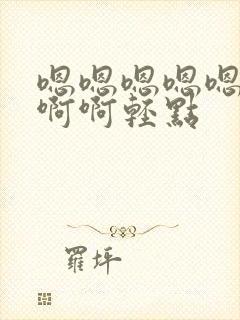 嗯嗯嗯嗯嗯
啊啊轻點
羅坪